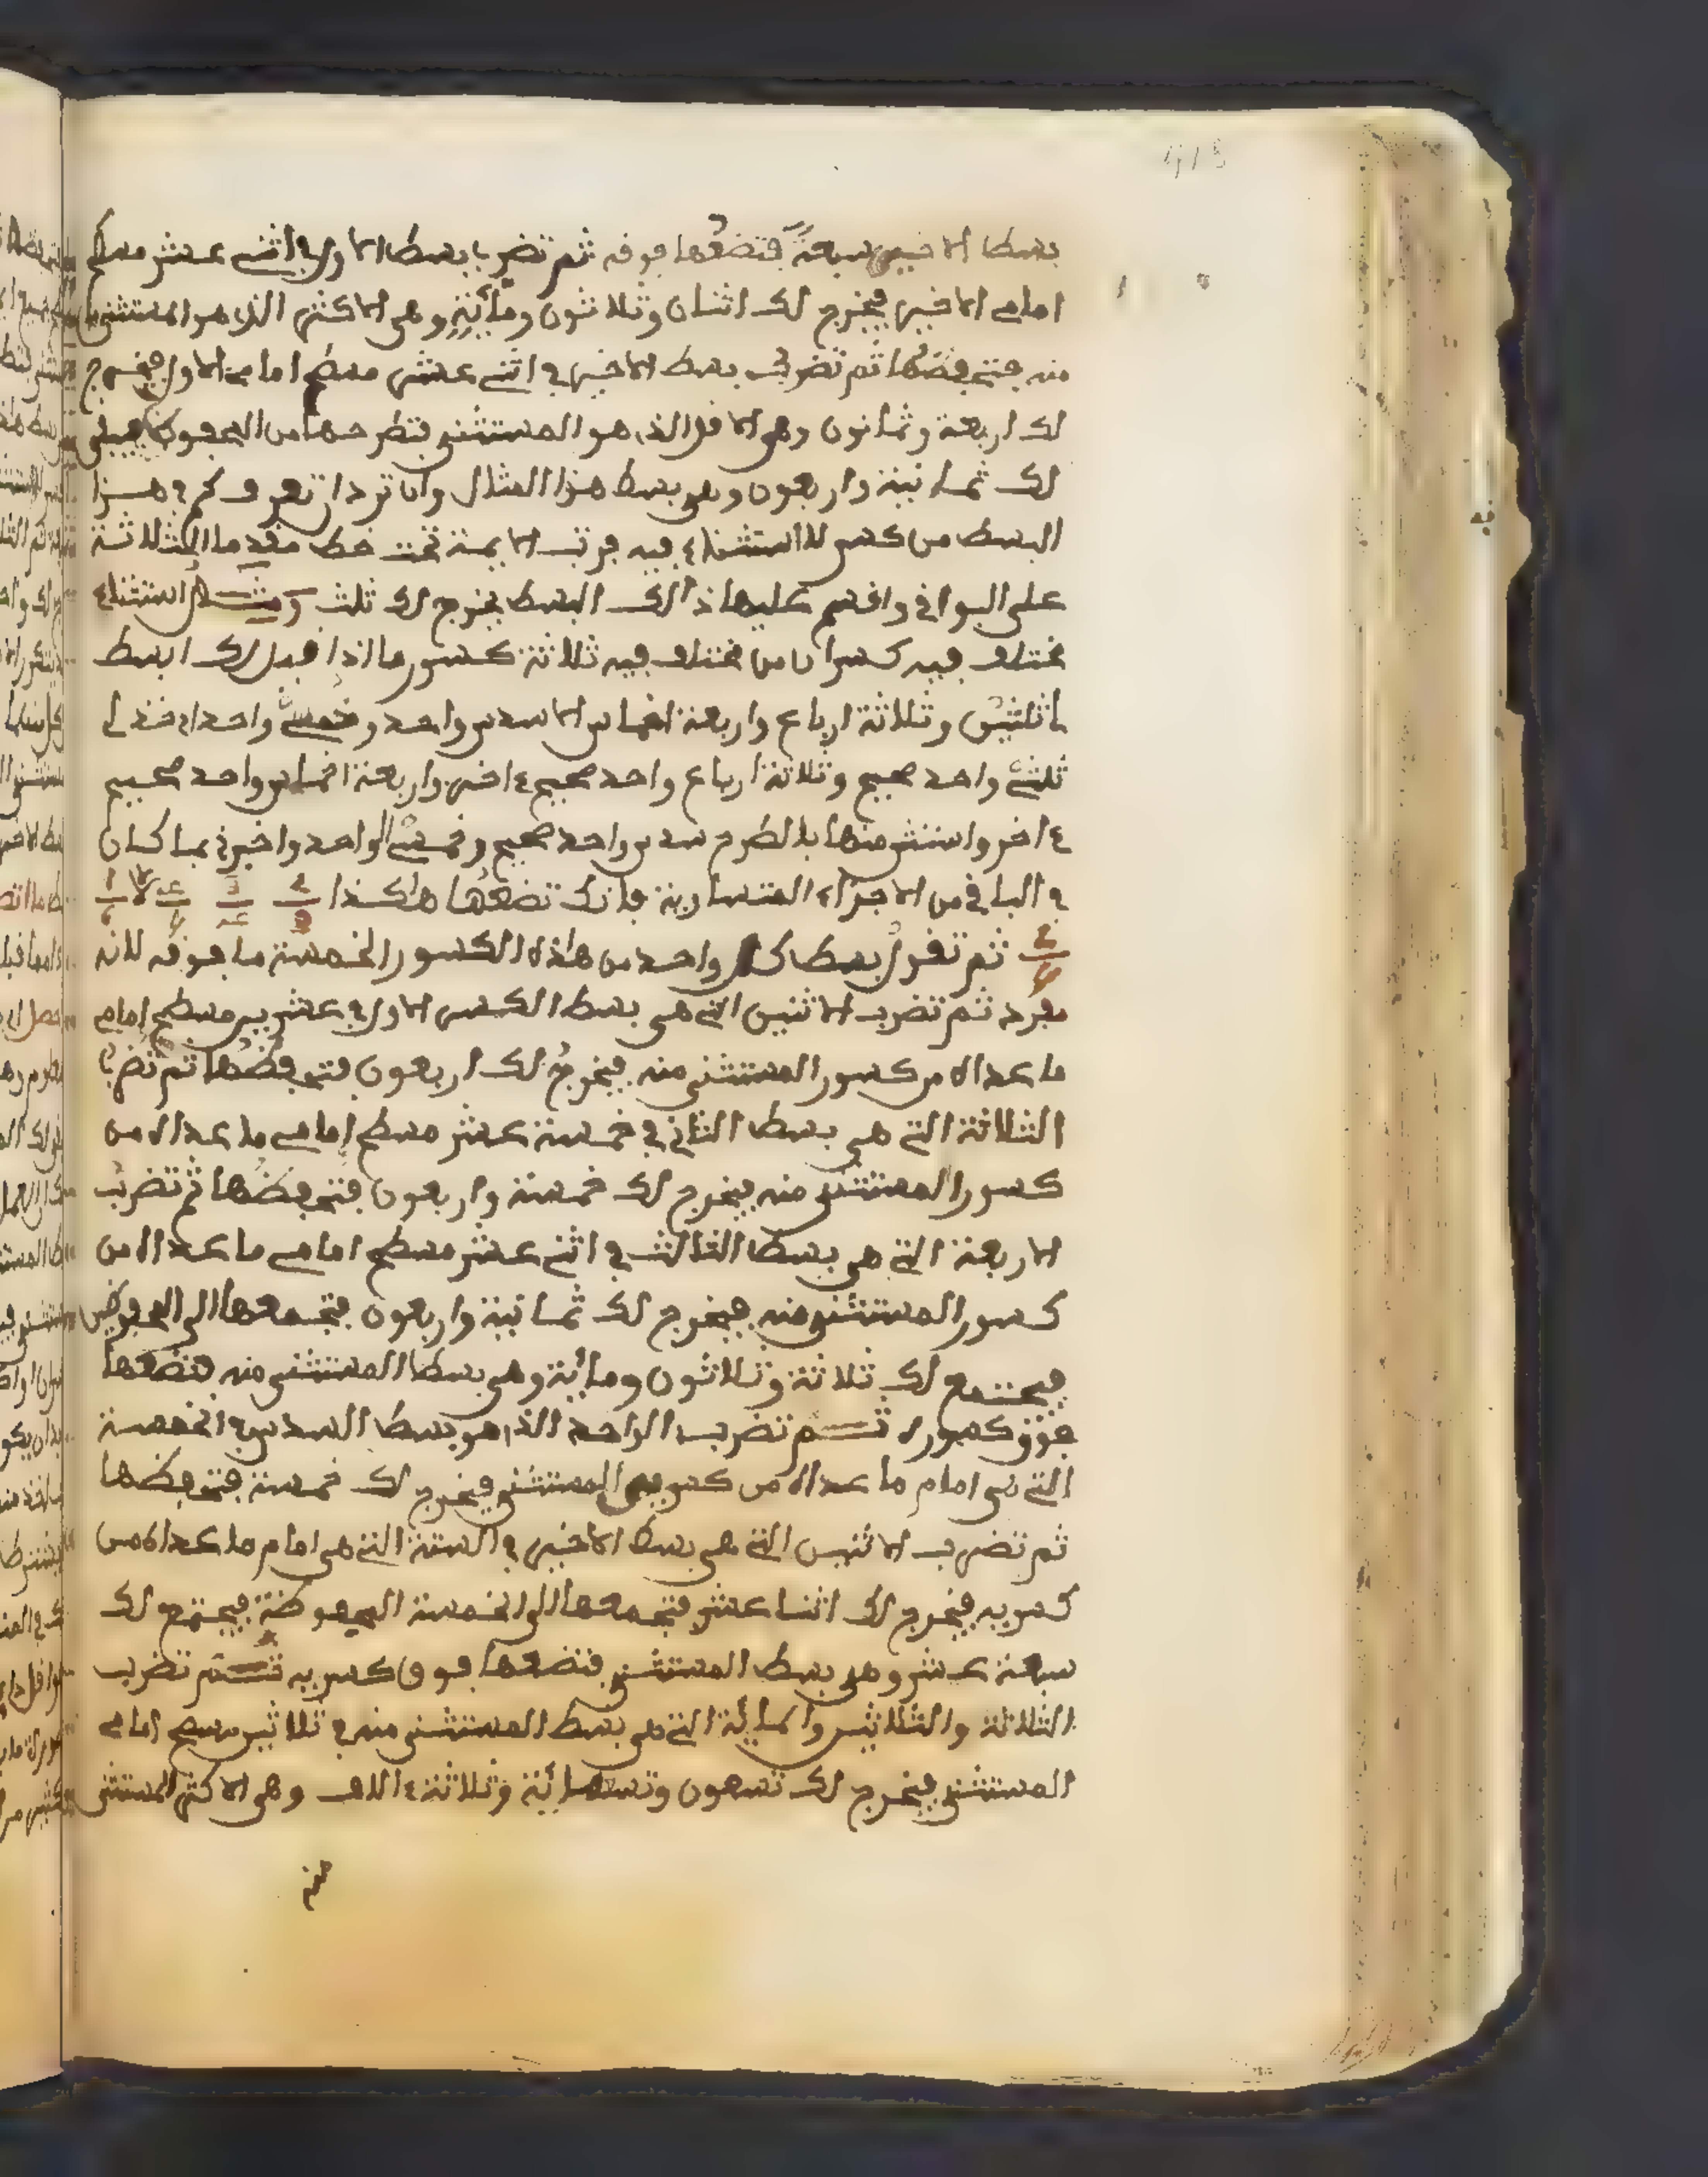 بسط الاخير سبعة فتضعها فوقه ثم تضرب بسط الاول في اثني عشر مسطح
امامي الاخير فيخرج لك اثنان وثلاثون ومائة وهي الاكثر الذي هو المستثنى
منه فتحفظها ثم تضرب بسط الاخير في اثني عشر مسطح امامي الاول فيخرج
لك اربعة وثمانون وهي الاقل الذي هو المستثنى فتطرحها من المحفوظ فيبقى
لك ثمانية واربعون وهي بسط هذا المثال وان ترد ان تعرف كم في هذا
البسط من كسر لا استثناء فيه فرتب الايمة تحت خط مقدما الثلاثة
على البواقي واقسم عليها ذالك البسط يخرج لك ثلث ومثال استثناء
مختلف فيه كسران من مختلف فيه ثلاثة كسور ما اذا قيل لك ابسط
ثلثين وثلاثة ارباع واربعة اخماس الا سدس واحد وخمسي واحد اي خذ لي
ثلثي واحد صحيح وثلاثة ارباع واحد صحيح ءاخر واربعة اخماس واحد صحيح
ءاخر واستثن منها بالطرح سدس واحد صحيح وخمسي الواحد واخبرني بما كان
في الباقي من الاجزاء المتساوية فانك تضعها هاكذا
ثم تقول بسط كل واحد من هاذه الكسور الخمسة ما فوقه لانه
مفرد ثم تضرب الاثنين التي هي بسط الكسر الاول في عشرين مسطح امامي
ما عداه من كسور المستثنى منه فيخرج لك اربعون فتحفظها ثم تضرب
الثلاثة التي هي بسط الثاني في خمسة عشر مسطح امامي ما عداه من
كسور المستثنى منه فيخرج لك خمسة واربعون فتحفظها ثم تضرب
الاربعة التي هي بسط الثالث في اثني عشر مسطح امامي ما عداه من
كسور المستثنى منه فيخرج لك ثمانية واربعون فتجمعها الى المحفوظين
فيجتمع لك ثلاثة وثلاثون ومائة وهي بسط المستثنى منه فتضعها
فوق كسوره ثم تضرب الواحد الذي هو بسط السدس في الخمسة
التي هي امام ما عداه من كسري المستثنى فيخرج لك خمسة فتحفظها
ثم تضرب الاثنين التي هي بسط الاخير في الستة التي هي امام ما عداه من
كسريه فيخرج لك اثنا عشر فتجمعها الى الخمسة المحفوظة فيجتمع لك
سبعة عشر وهي بسط المستثنى فتضعها فوق كسريه ثم تضرب
الثلاثة والثلاثين والمائة التي هي بسط المستثنى منه في ثلاثين مسطح امامي
المستثنى فيخرج لك تسعون وتسعمائة وثلاثة ءالاف وهي الاكثر المستثنى
منه